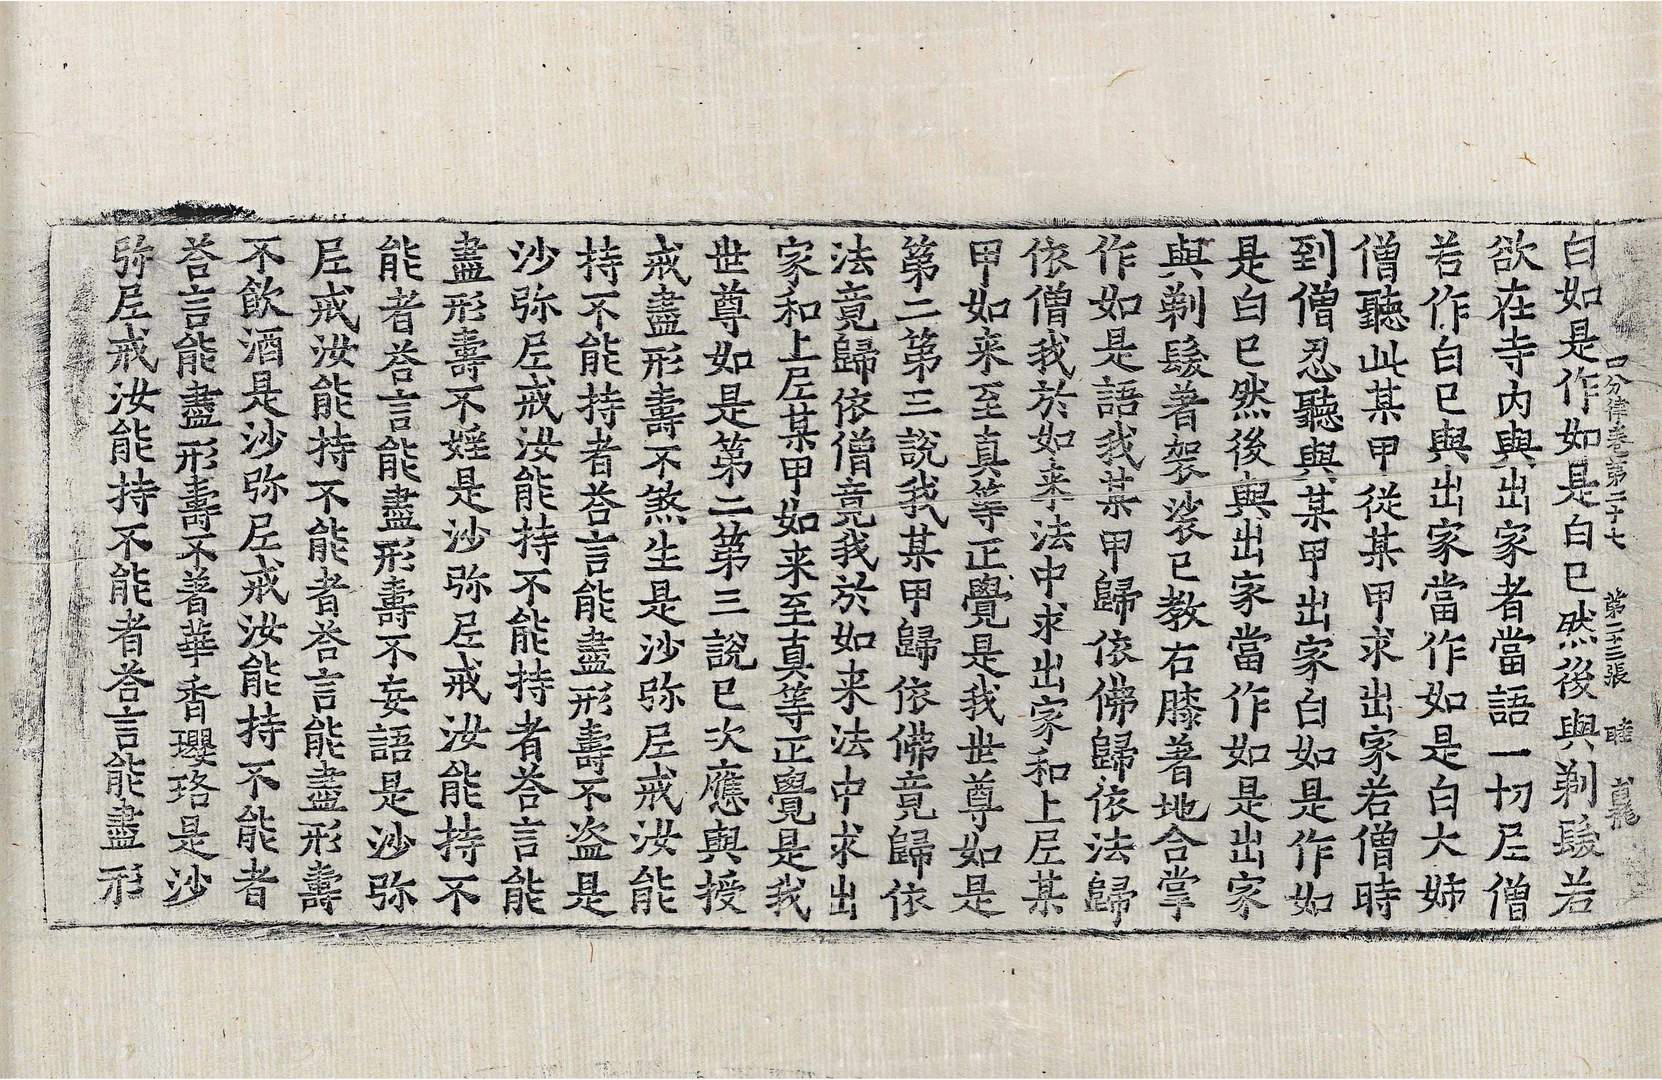 四分律卷第二十七 第二十三張 睦
白如是作如是白已然後與剃髮若
欲在寺内與出家者當語一切尼僧
若作白已與出家當作如是白大姊
僧聽此某甲從某甲求出家若僧時
到僧忍聽與某甲出家白如是作如
是白已然後與出家當作如是出家
與剃髮著袈裟已教右膝著地合掌
作如是語我某甲歸依佛歸依法歸
依僧我於如来法中求出家和上尼某
甲如来至真等正覺是我世尊如是
第二第三說我某甲歸依佛竟歸依
法竟歸依僧竟我於如来法中求出
家和上尼某甲如来至真等正覺是我
世尊如是第二第三說已次應與授
戒盡形壽不煞生是沙弥尼戒汝能
持不能持者荅言能盡形壽不盜是
沙弥尼戒汝能持不能持者荅言能
盡形壽不婬是沙弥尼戒汝能持不
能者荅言能盡形壽不妄語是沙弥
尼戒汝能持不能者荅言能盡形壽
不飲酒是沙弥尼戒汝能持不能者
荅言能盡形壽不著華香瓔珞是沙
弥尼戒汝能持不能者荅言能盡形